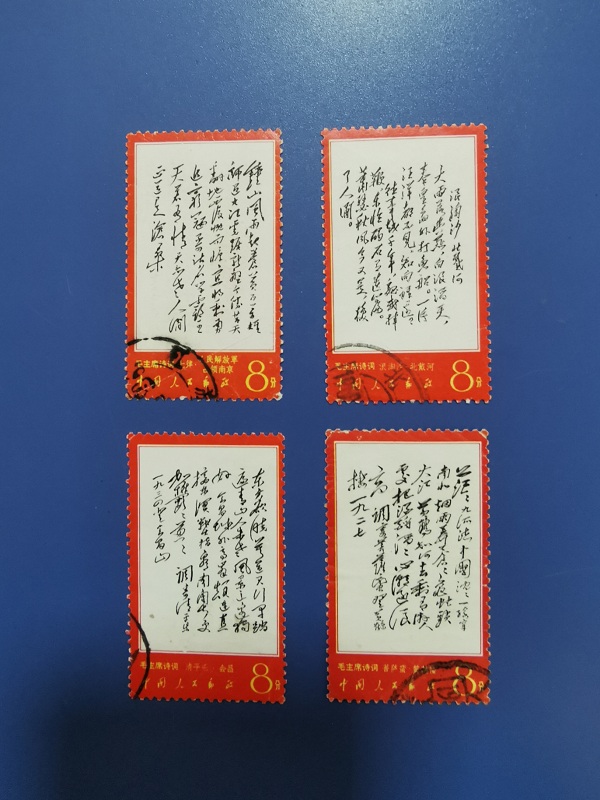 鍾山風雨起蒼黃百万雄
師过大江虎踞龍盤今勝昔天
翻地覆慨而慷宜將剩勇
追窮寇不可沽名學霸王
天若有情天亦老人间
正道是滄桑
毛主席诗词 律 民解放军
领南京
中国人民邮政 8分
浪淘沙 北戴河
大雨落幽燕,白浪滔天,
秦皇岛外打魚船。一片
汪洋都不見,知向誰邊?
往事越千年,魏武揮
鞭,東临碣石有遺篇。
蕭瑟秋風今又是,換
了人间。
毛主席诗词 浪淘沙·北戴河
中国人民邮政 8分
东方欲晓莫道君行早踏
遍青山人未老風景这边独
好 会昌城外高峰顛連直
接东溟戰士指看南粤更
加鬱鬱葱葱 调寄清平乐
一九三四 登 山
毛主席诗词 清平乐·会昌
中国人民邮政 8分
茫茫九派流中國沉沉一綫穿
南北烟雨莽苍苍龟蛇锁
大江 黄鹤知何去剩有游人
處把酒酹滔滔心潮逐浪
高 调寄菩萨蛮登黄鹤
楼 一九二七
毛主席诗词 菩萨蛮·黄鹤楼
中国人民邮政 8分